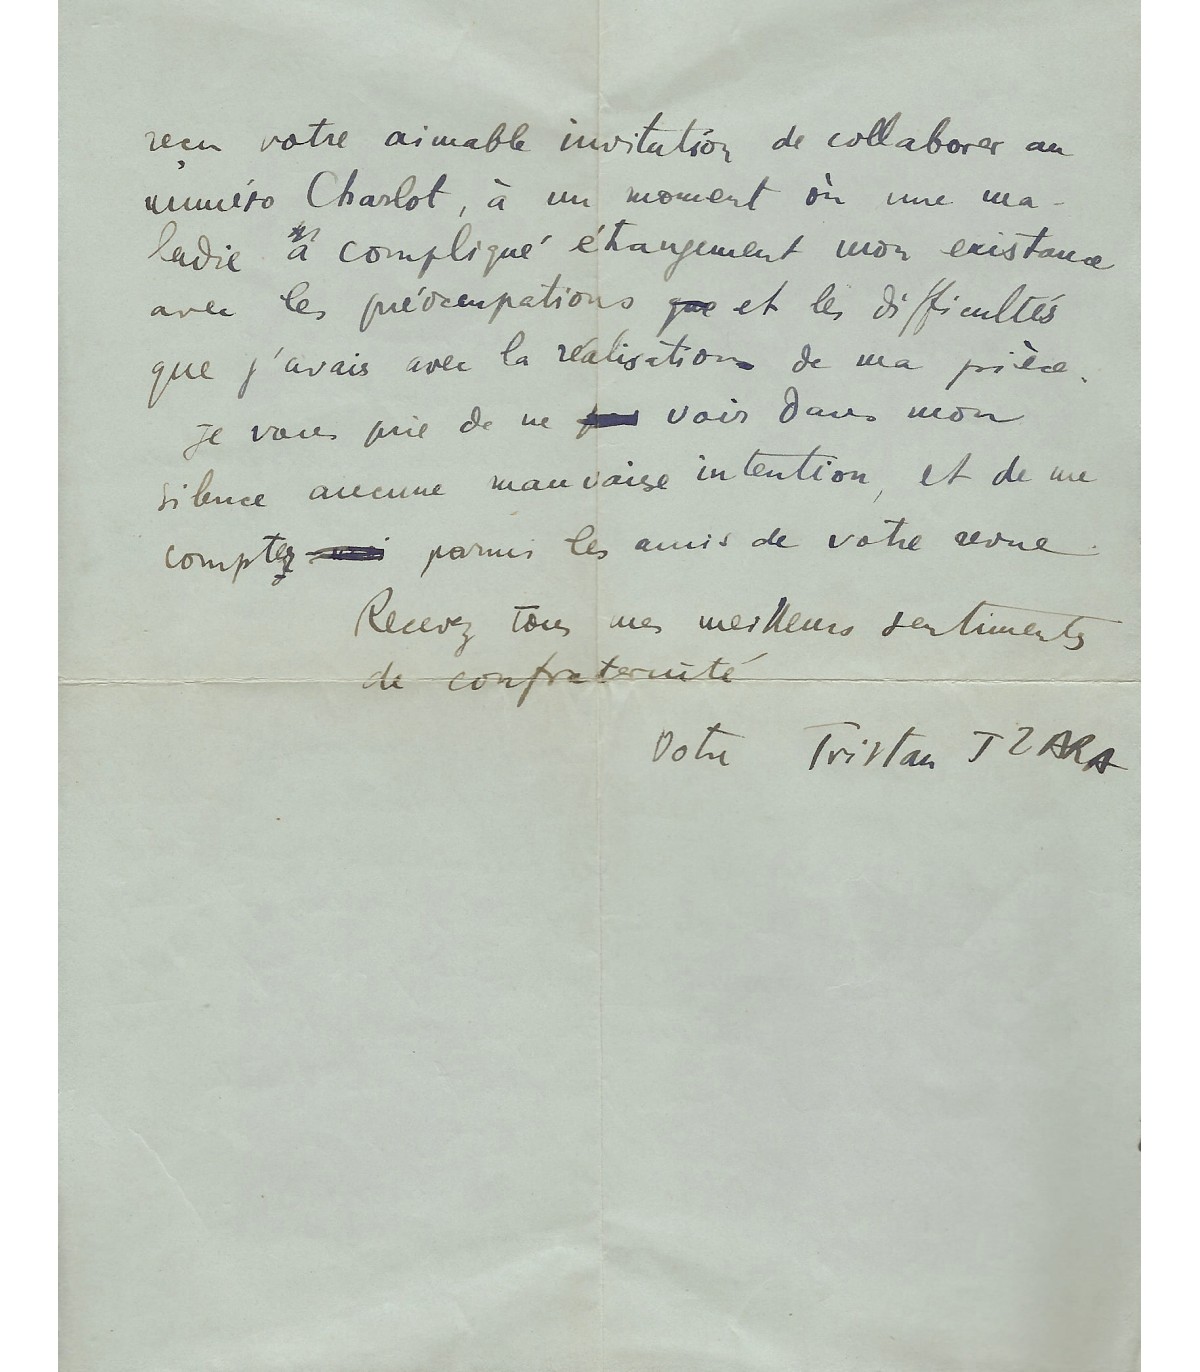 reçu votre aimable invitation de collaborer au
numéro Charlot, à un moment où une ma-
ladie a compliqué étrangement mon existance
avec les préoccupations que et les difficultés
que j'avais avec la réalisation de ma pièce.
Je vous prie de ne pas voir dans mon
silence aucune mauvaise intention, et de me
compter parmis les amis de votre revue.
Recevez tous mes meilleurs sentiments
de confraternité
Votre Tristan TZARA